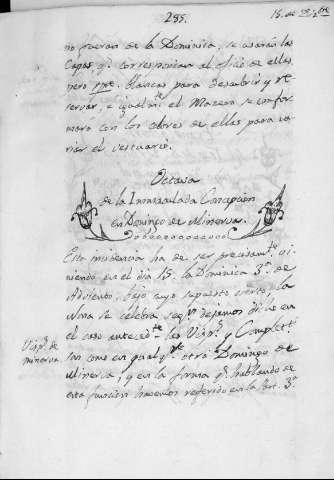 285.
15. de Dizbre
no fueran de la Dominica, se usarán las
Capas, qe. correspondan al oficio de ellas
pero pre. blancas para descubrir y re-
servar, e igualmte. el Macero se confor-
mará con los colores de ellas para va-
riar el vestuario.
Octava
de la Inmaculada Concepcion
en Domingo de Minerva.
Esta incidencia ha de ser precisamte. vi-
niendo en el dia 15. la Dominica 3a. de
Adviento, bajo cuyo supuesto cierto, la
Misa se celebra segn. dejamos dicho en
el caso antecedte. las Visps. y Completas
Visps. de
minerva
tan como en qualqe. otro Domingo de
Minerva, y en la forma qe. hablando de
esta funcion hacemos referido en la Art. 3o.